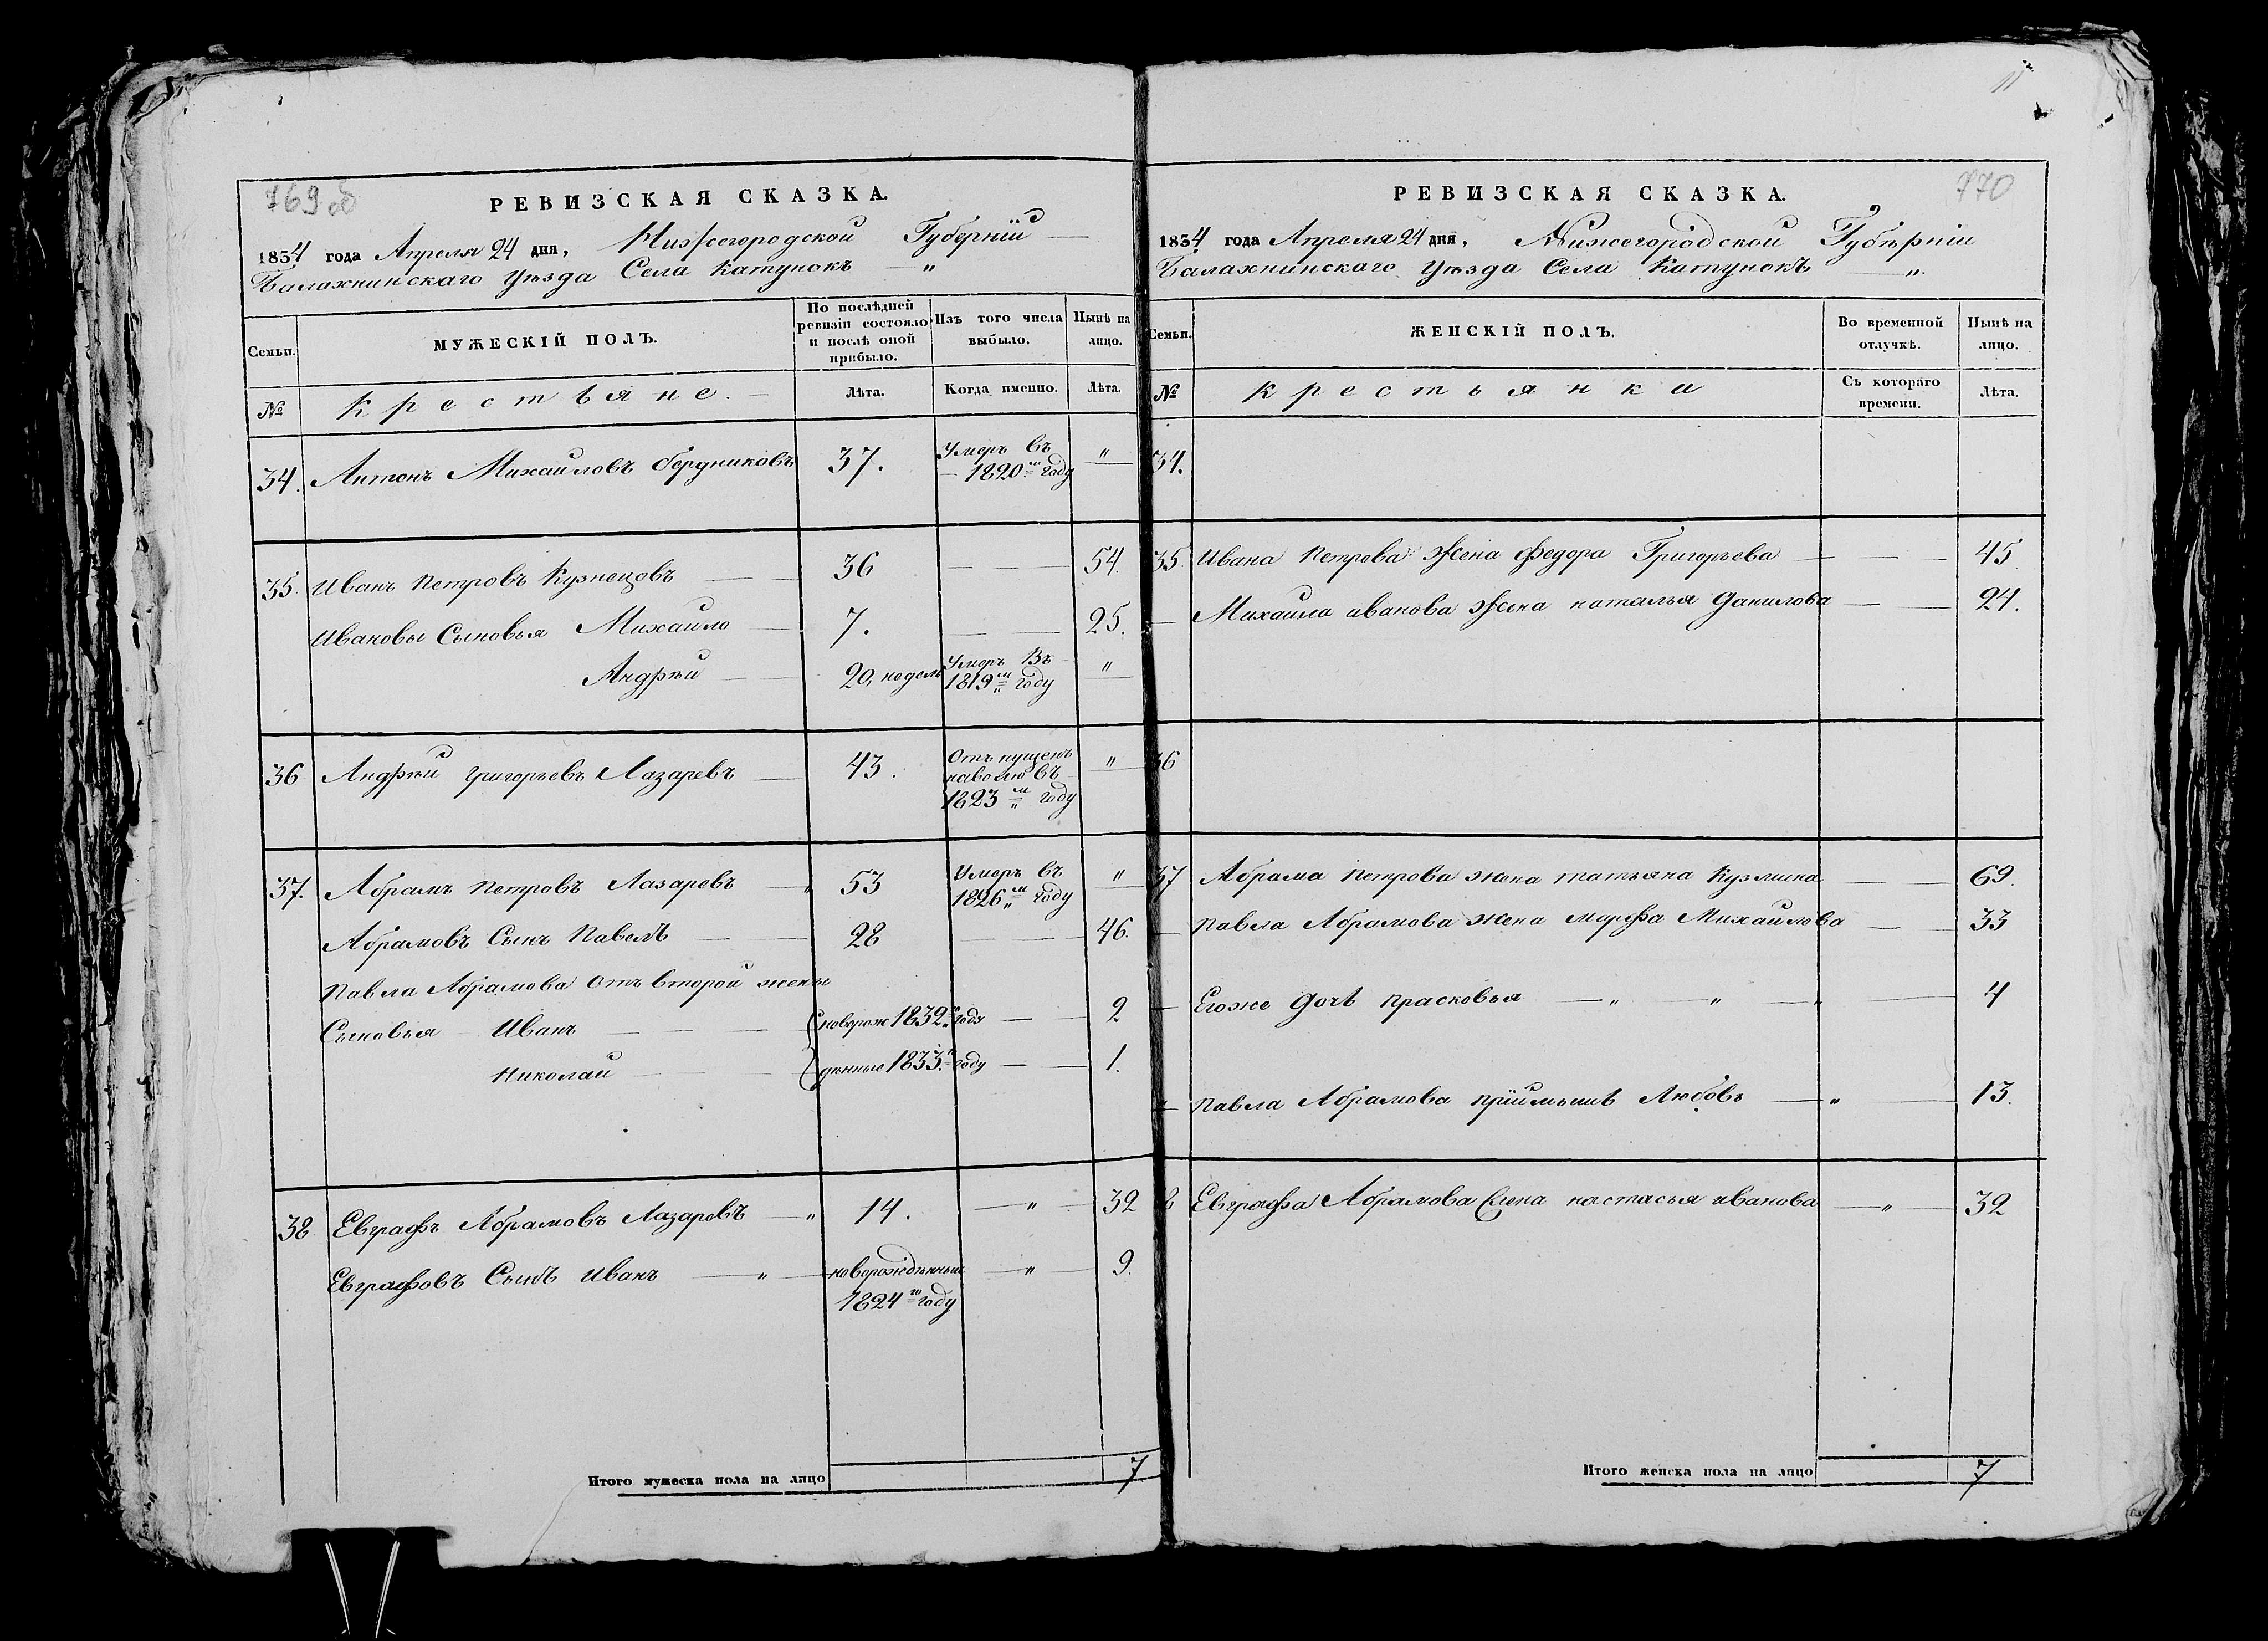 769об
РЕВИЗСКАЯ СКАЗКА.
1834 года Апреля 24 дня, Нижегородской Губерніи
Балахнинскаго Уѣзда Села Катунокъ — "
Семьи.
МУЖЕСКІЙ ПОЛЪ.
По послѣдней ревизіи состояло и послѣ оной прибыло.
Изъ того числа выбыло.
Нынѣ на лицо.
№
Крестьяне.
Лѣта.
Когда именно.
Лѣта.
34. Антонъ Михайловъ бердниковъ 37. Умеръ въ 1820м году "
35. Иванъ Петровъ Кузнецовъ 36 — 54.
Ивановы Сыновья Михайло 7. — 25.
Андрѣй 20, недель Умеръ Въ 1819м году "
36 Андрѣй григорьевъ Лазаревъ 43. Отъ пущенъ наволю въ 1823м году "
37. Абрамъ Петровъ Лазаревъ — 53 Умеръ въ 1826м году "
Абрамовъ Сынъ Павелъ 28 — 46.
Павла Абрамова отъ второй жены
Сыновья Иванъ — новорож 1832го году — 2
Николай — дѣнные 1833го году — 1.
38 Евграфъ Абрамовъ Лазаревъ — " 14. — " — 32
Евграфовъ Сынъ иванъ — " — новорождѣнный — " — 9.
1824го году
Итого мужеска пола на лицо 7
11
770
РЕВИЗСКАЯ СКАЗКА.
1834 года Апреля 24 дня, Нижегородской Губѣрніи
Балахнинскаго Уѣзда Села Катунокъ "
Семьи.
ЖЕНСКІЙ ПОЛЪ.
Во временной отлучкѣ.
Нынѣ на лицо.
№
крестьянки
Съ котораго времени.
Лѣта.
34.
35. Ивана Петрова Жена федора Григорьева — 45.
Михайла иванова Жена наталья Данилова — 24.
36
37 Абрама Петрова жена татьяна Кузмина — 69.
Павла Абрамова жена марфа Михайлова — 33
Егоже дочь прасковья — " — " — " — 4
Павла Абрамова пріймышъ Любовь — " — 13.
8 Евграфа Абрамова жена настасья иванова — " — 32
Итого женска пола на лицо 7